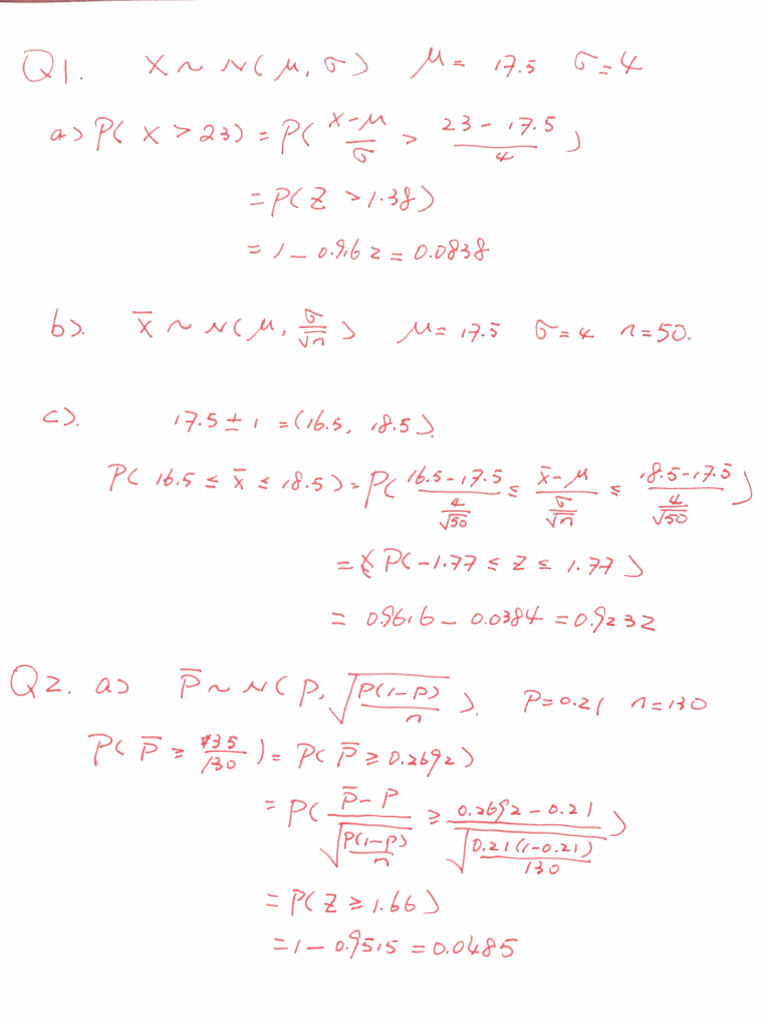 Q1. X ~ N(μ, σ) μ = 17.5 σ = 4
a) P(X > 23) = P((X-μ)/σ > (23-17.5)/4)
= P(Z > 1.38)
= 1 - 0.9162 = 0.0838
b). X̄ ~ N(μ, σ/√n) μ = 17.5 σ = 4 n = 50.
c). 17.5 ± 1 = (16.5, 18.5).
P(16.5 ≤ X̄ ≤ 18.5) = P((16.5-17.5)/(4/√50) ≤ (X̄-μ)/(σ/√n) ≤ (18.5-17.5)/(4/√50))
= P(-1.77 ≤ Z ≤ 1.77)
= 0.9616 - 0.0384 = 0.9232
Q2. a) P̄ ~ N(P, √(P(1-P)/n)). P = 0.21 n = 130
P(P̄ ≥ 35/130) = P(P̄ ≥ 0.2692)
= P((P̄-P)/√(P(1-P)/n) ≥ (0.2692-0.21)/√(0.21(1-0.21)/130))
= P(Z ≥ 1.66)
= 1 - 0.9515 = 0.0485